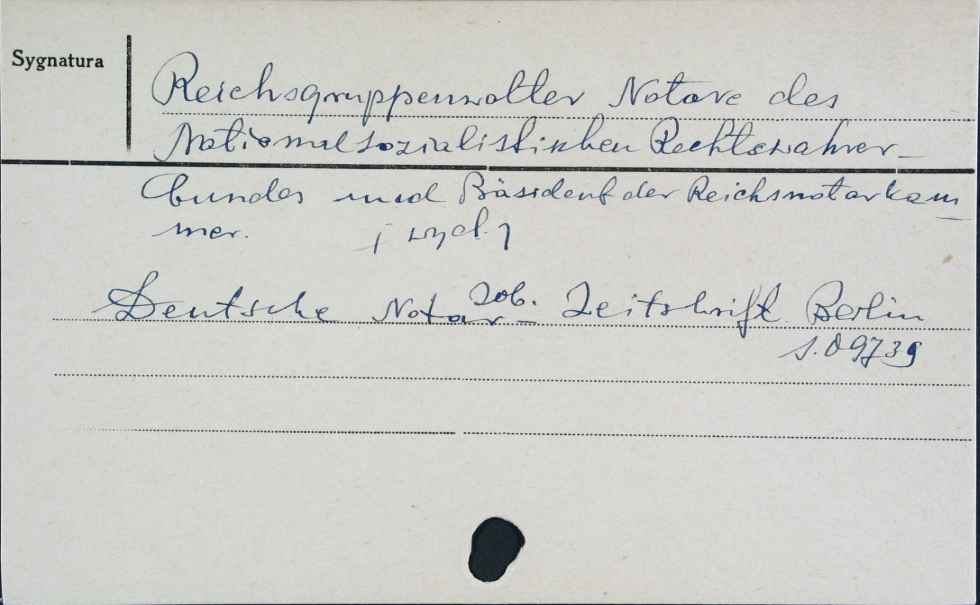 Sygnatura
Reichsgruppenwalter Notare des
Nationalsozialistischen Rechtswahrer-
bundes und Präsident der Reichsnotarkam
mer. [wyd.]
zob.
Deutsche Notar- Zeitschrift Berlin
s. 09739